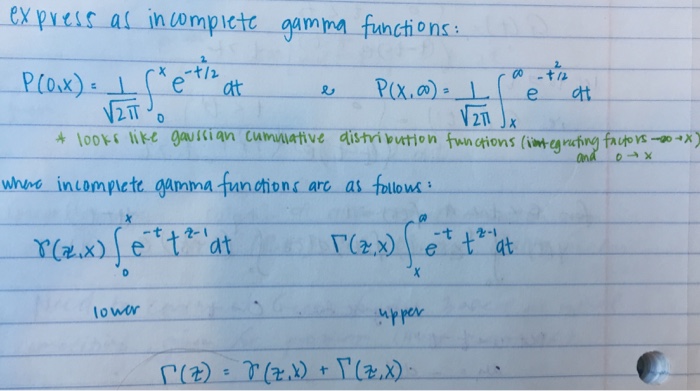 express as incomplete gamma functions:
P(0,x) = 1/√2π ∫₀ˣ e^(-t²/2) dt & P(x,∞) = 1/√2π ∫ₓ^∞ e^(-t²/2) dt
* looks like gaussian cumulative distribution functions (integrating factors -∞→x)
and 0→x
where incomplete gamma functions are as follows:
γ(z,x) ∫₀ˣ e^(-t) t^(z-1) dt Γ(z,x) ∫ₓ^∞ e^(-t) t^(z-1) dt
lower upper
Γ(z) = γ(z,x) + Γ(z,x).